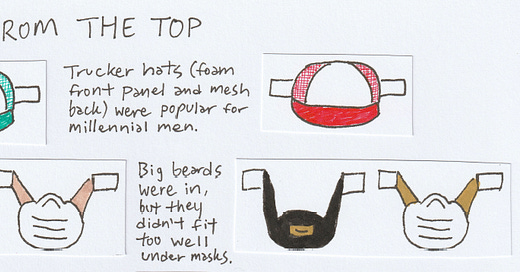 ROM THE TOP
Trucker hats (foam
front panel and mesh
back) were popular for
millennial men.
Big beards
were in,
but they
didn't fit
too well
under masks.